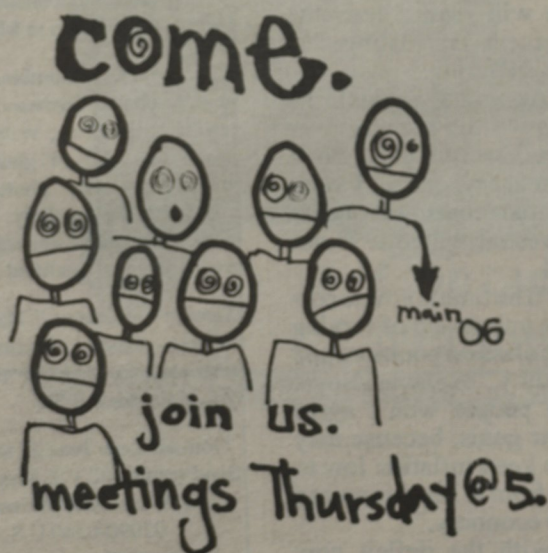 come.
main 06
join us.
meetings Thursday @ 5.